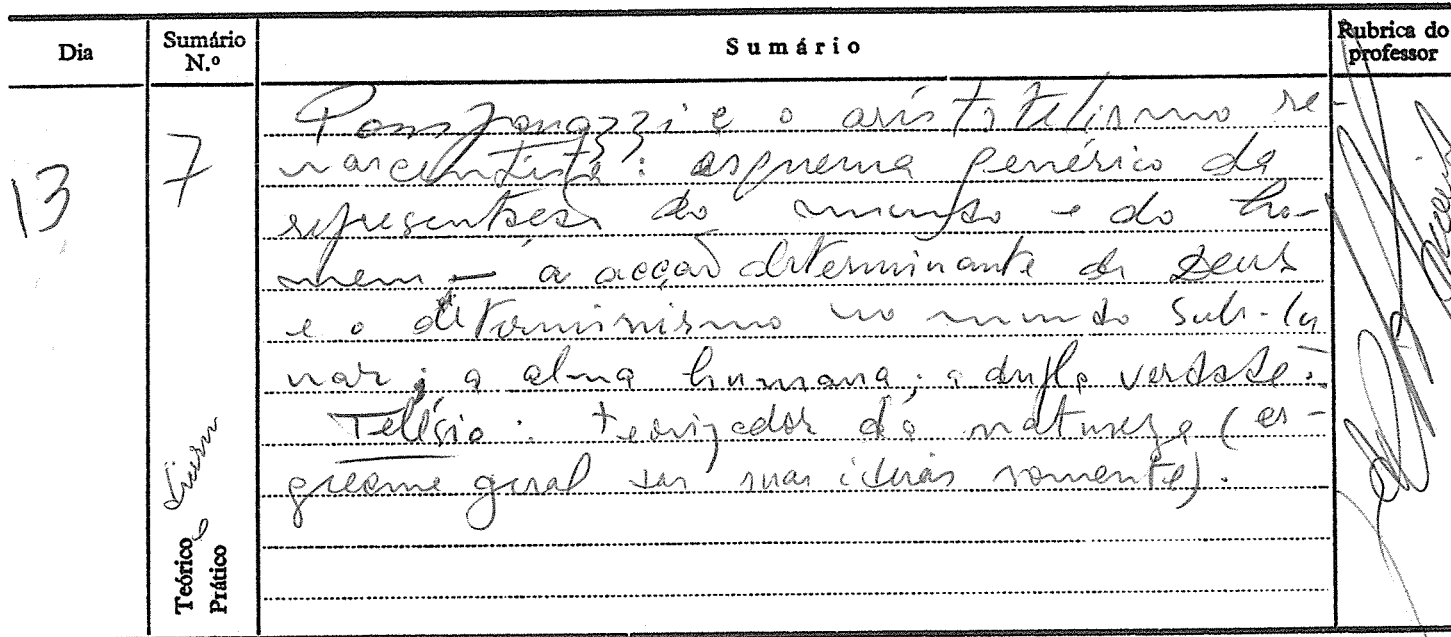 Dia
Sumário N.º
Sumário
Rubrica do professor
13
7
Pomponazzi e o aristotelismo re-
nascentista: esquema genérico da
representação do mundo e do ho-
mem — a acção determinante de Deus
e o determinismo no mundo sub-lu
nar; a alma humana; a dupla verdade.
Telésio: teorizador da natureza (es-
quema geral das suas ideias somente).
Teórico
Prático